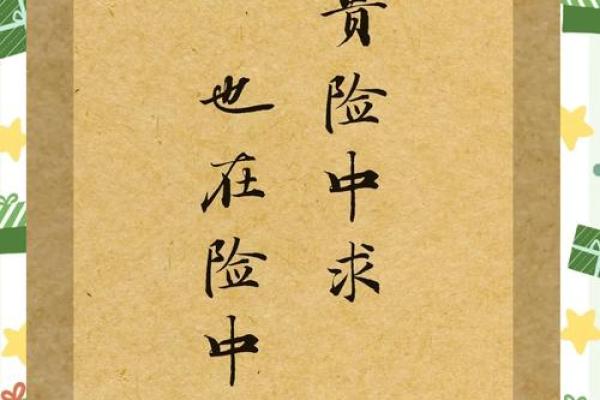 贵险中求
也在险中